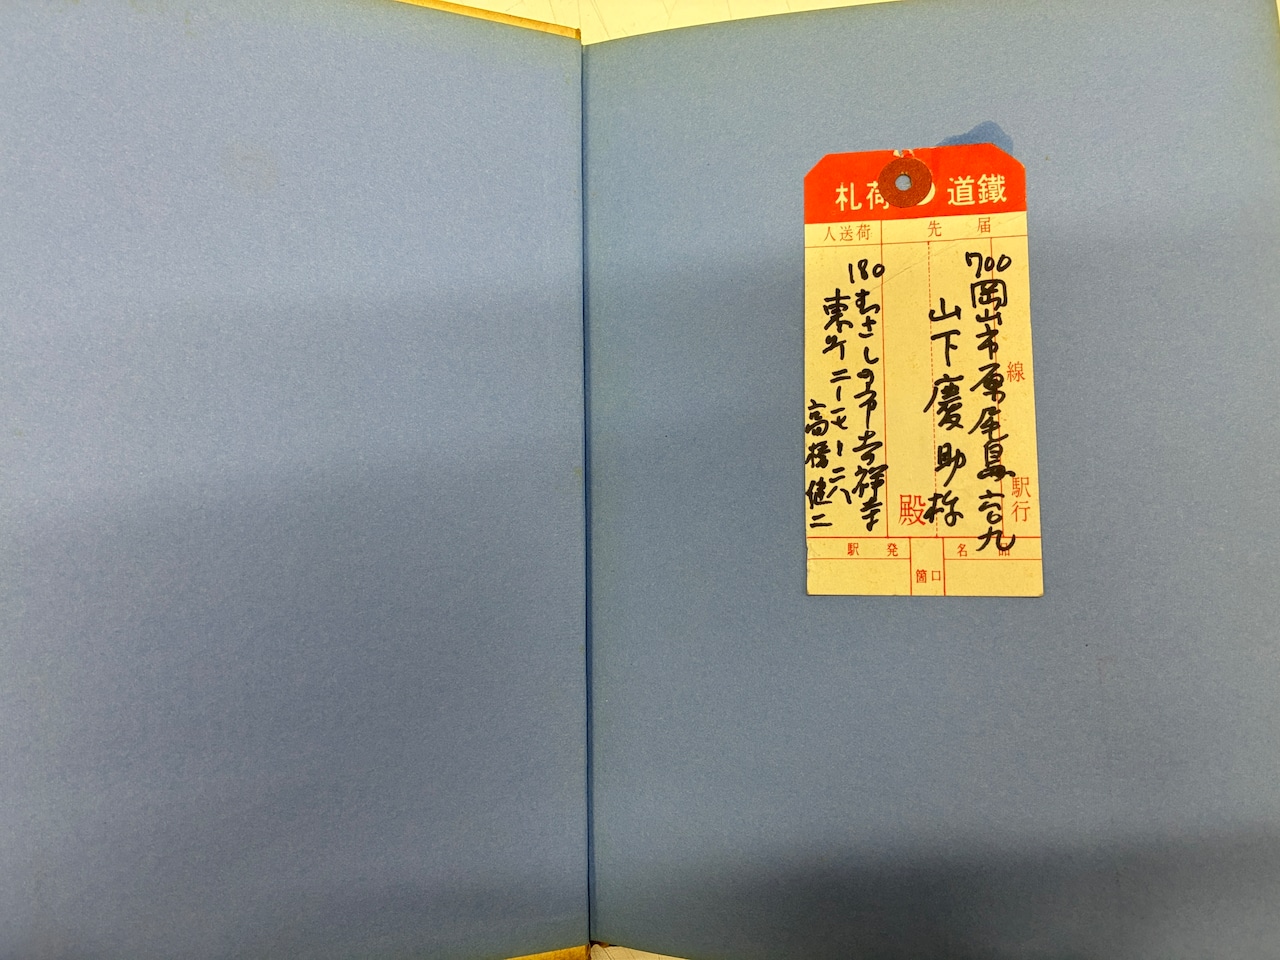 鐵道荷札
届先
線
駅行
700
岡山市原尾島六〇九
山下慶助様
殿
荷送人
180
むさしの市吉祥寺
東町二ー七ー二六
高橋健二
品名
口箇
発駅